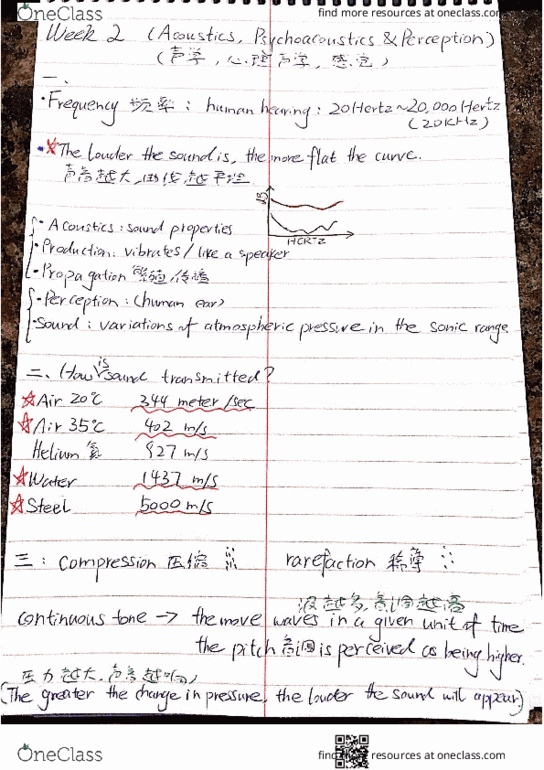 OneClass
find more resources at oneclass.com
Week 2 (Acoustics, Psychoacoustics & Perception)
(声学, 心理声学, 感觉)
一、
• Frequency 频率: human hearing: 20 Hertz ~ 20,000 Hertz
(20KHz)
• ☆ The louder the sound is, the more flat the curve.
声音越大, 曲线越平坦
dB
HERTZ
• Acoustics: sound properties
• Production: vibrates / like a speaker
• Propagation 繁殖, 传播
• Perception: (human ear)
• Sound: variations of atmospheric pressure in the sonic range
二、(How is sound transmitted?
☆ Air 20°C 344 meter/sec
☆ Air 35°C 402 m/s
Helium 氦 927 m/s
☆ Water 1437 m/s
☆ Steel 5000 m/s
三: compression 压缩 rarefaction 稀薄
波越多, 音调越高
continuous tone → the more waves in a given unit of time
the pitch 音调 is perceived as being higher.
压力越大, 声音越响,
(The greater the change in pressure, the louder the sound will appear)
OneClass
find more resources at oneclass.com